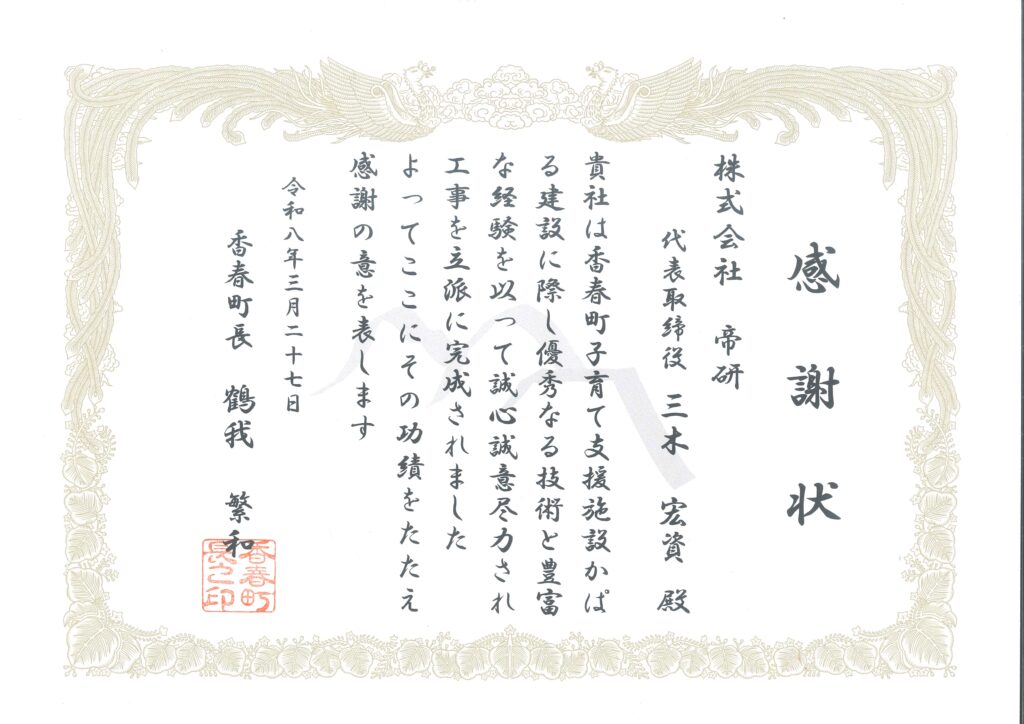 感謝状
株式会社 帝研
代表取締役 三木 宏資 殿
貴社は香春町子育て支援施設かぱ
る建設に際し優秀なる技術と豊富
な経験を以って誠心誠意尽力され
工事を立派に完成されました
よってここにその功績をたたえ
感謝の意を表します
令和八年三月二十七日
香春町長 鶴我 繁和
香春町
長之印